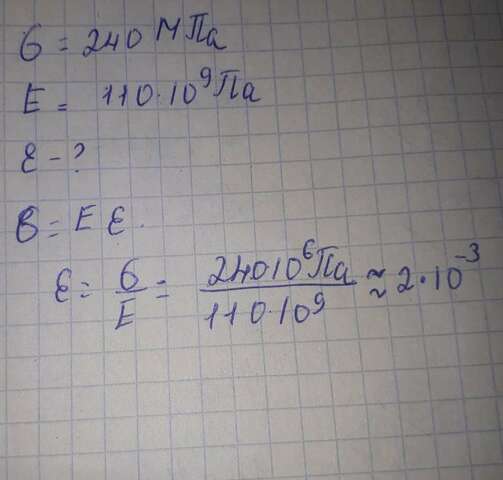 σ = 240 МПа
E = 110·10⁹ Па
ε - ?
σ = E ε.
ε = σ/E = 24010⁶Па/110·10⁹ ≈ 2·10⁻³